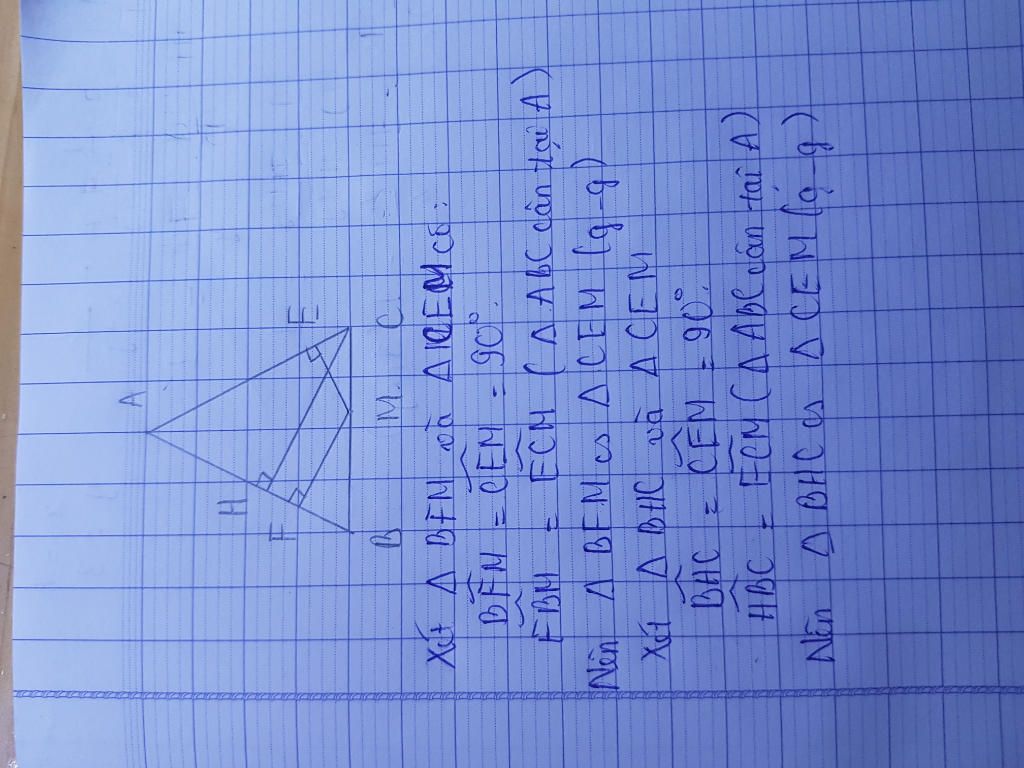 A
H
F
E
B
M.
C
Xét Δ BFM và Δ CEM có:
BFM = CEM = 90°.
FBM = ECM ( Δ ABC cân tại A)
Nên Δ BFM ∽ Δ CEM (g-g)
Xét Δ BHC và Δ CEM
BHC = CEM = 90°.
HBC = ECM ( Δ ABC cân tại A)
Nên Δ BHC ∽ Δ CEM (g-g)